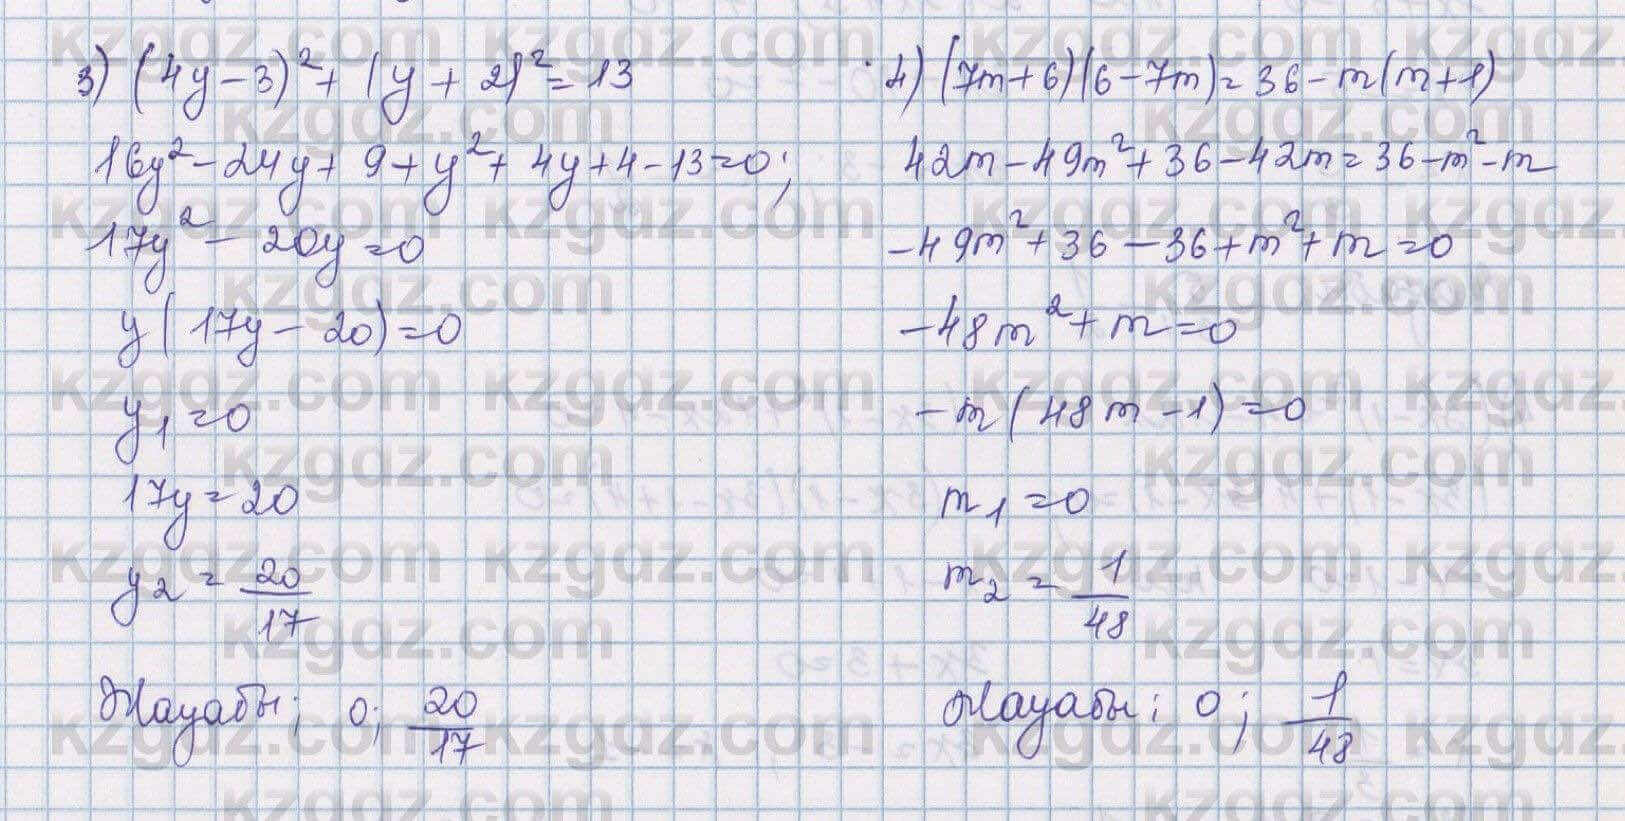 3) (4y-3)²+(y+2)²=13
16y²-24y+9+y²+4y+4-13=0;
17y²-20y=0
y(17y-20)=0
y₁=0
17y=20
y₂=20/17
Жауабы; 0; 20/17
4) (7m+6)(6-7m)=36-m(m+1)
42m-49m²+36-42m=36-m²-m
-49m²+36-36+m²+m=0
-48m²+m=0
-m(48m-1)=0
m₁=0
m₂=1/48
Жауабы; 0; 1/48
kzgdz.com